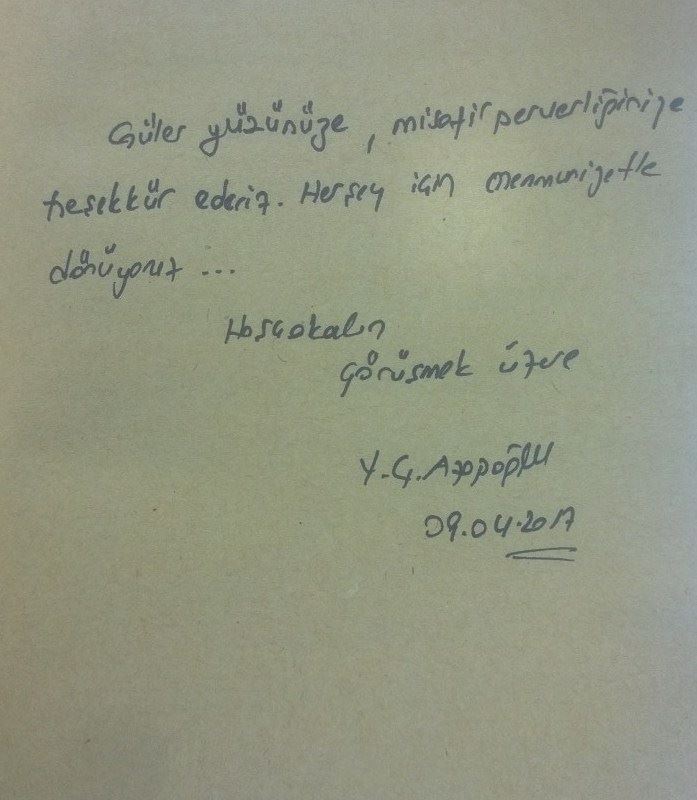 Güler yüzünüze, misafirperverliğinize
teşekkür ederiz. Herşey için memnuniyetle
dönüyoruz ...
Hoşçakalın
Görüşmek üzere
Y. G.
09.04.2017